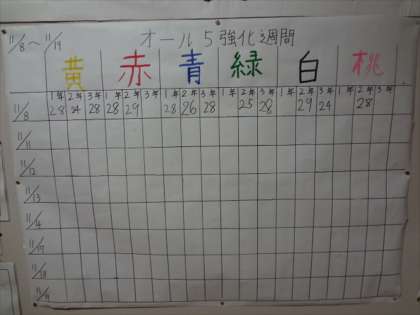 11/8～11/19 オール5強化週間
黄 赤 青 緑 白 桃
1年 2年 3年 1年 2年 3年 1年 2年 3年 1年 2年 3年 1年 2年 3年 1年 2年 3年
11/8 28 24 28 28 29 28 26 28 25 28 29 24 28
11/11
11/12
11/13
11/14
11/17
11/18
11/19